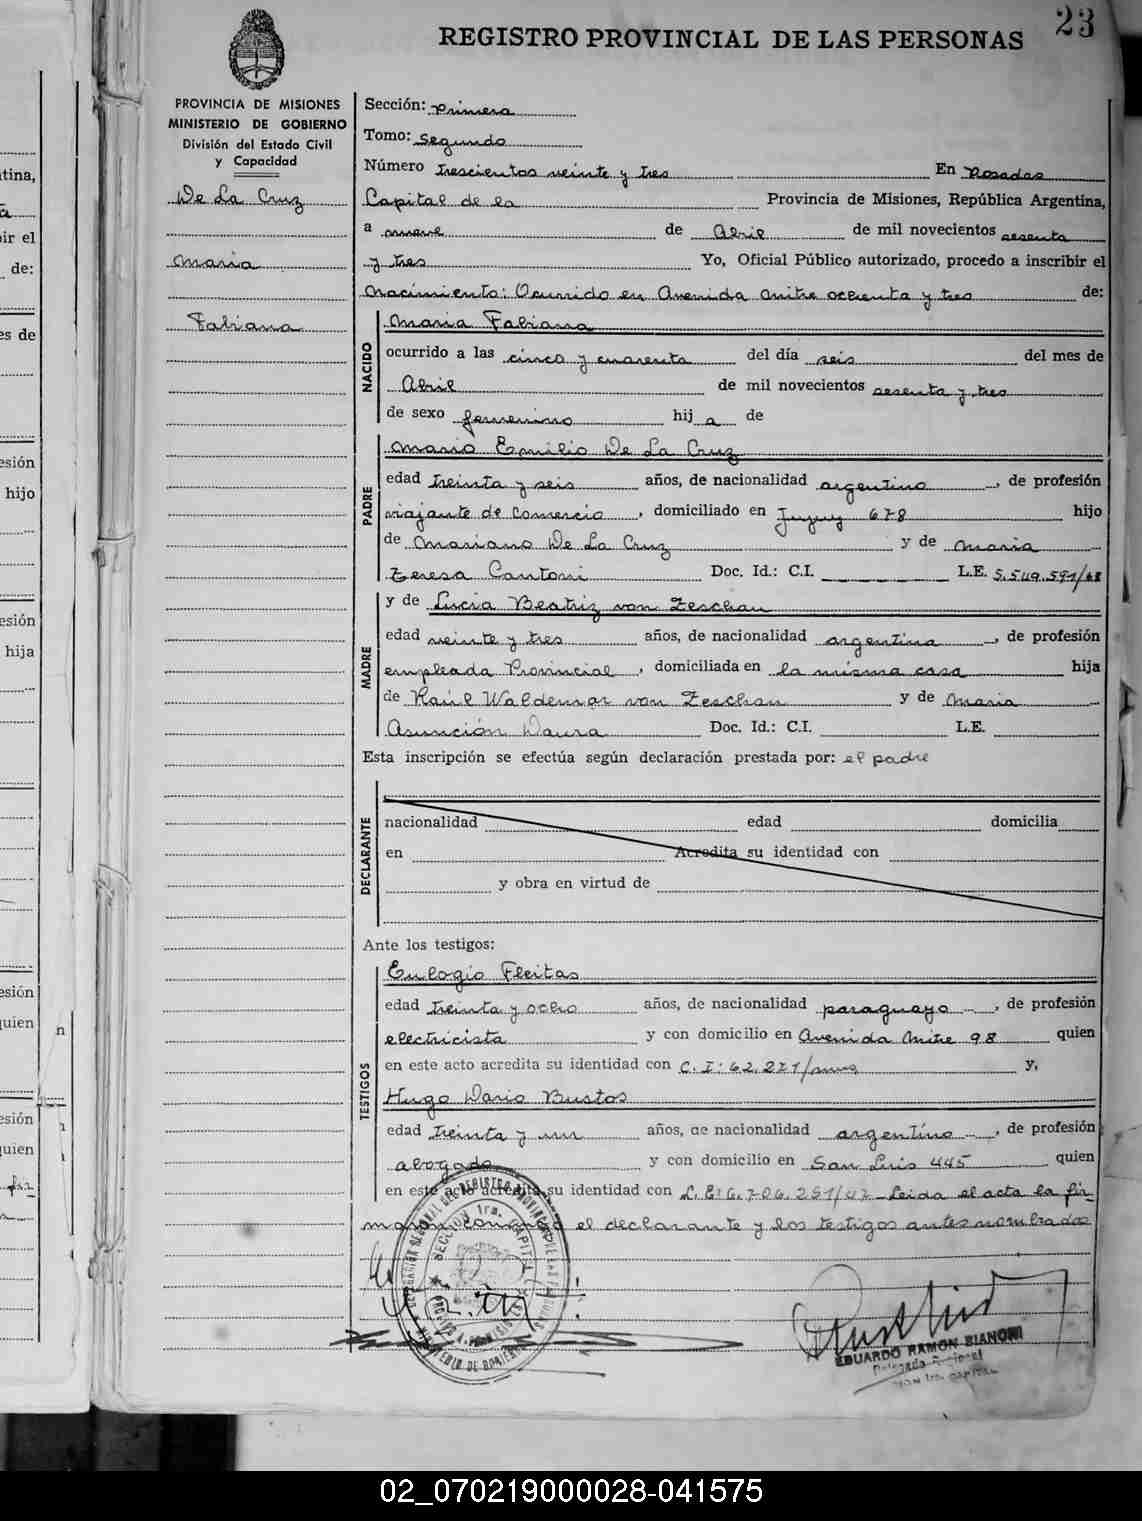 23
REGISTRO PROVINCIAL DE LAS PERSONAS
PROVINCIA DE MISIONES
MINISTERIO DE GOBIERNO
División del Estado Civil
y Capacidad
De La Cruz
Maria
Fabiana
Sección: Primera
Tomo: Segundo
Número trescientos veinte y tres En Posadas
Capital de la Provincia de Misiones, República Argentina,
a nueve de Abril de mil novecientos sesenta
y tres Yo, Oficial Público autorizado, procedo a inscribir el
Nacimiento: Ocurrido en Avenida Mitre ochenta y tres de:
NACIDO
Maria Fabiana
ocurrido a las cinco y cuarenta del día seis del mes de
Abril de mil novecientos sesenta y tres
de sexo femenino hij a de
PADRE
Mario Emilio De La Cruz
edad treinta y seis años, de nacionalidad argentino, de profesión
viajante de Comercio, domiciliado en Jujuy 678 hijo
de Mariano De La Cruz y de Maria
Teresa Cantoni Doc. Id.: C.I. L.E. 5.549.591/
MADRE
y de Lucia Beatriz von Zeschau
edad veinte y tres años, de nacionalidad argentina, de profesión
empleada Provincial, domiciliada en la misma casa hija
de Raúl Waldemar von Zeschau y de Maria
Asunción Doc. Id.: C.I. L.E.
Esta inscripción se efectúa según declaración prestada por: el padre
DECLARANTE
nacionalidad edad domicilia
en Acredita su identidad con
y obra en virtud de
Ante los testigos:
TESTIGOS
Eulogio Fleitas
edad treinta y ocho años, de nacionalidad paraguayo, de profesión
electricista y con domicilio en Avenida Mitre 98 quien
en este acto acredita su identidad con C.I: 62.271/ y,
Hugo Dario Bustos
edad treinta y un años, de nacionalidad argentino, de profesión
abogado y con domicilio en San Luis 445 quien
en este acto acredita su identidad con L.E: 6.706.251/47 - Leida el acta la fir-
man conmigo el declarante y los testigos antes nombrados
EDUARDO RAMON BIANCHI
02_070219000028-041575